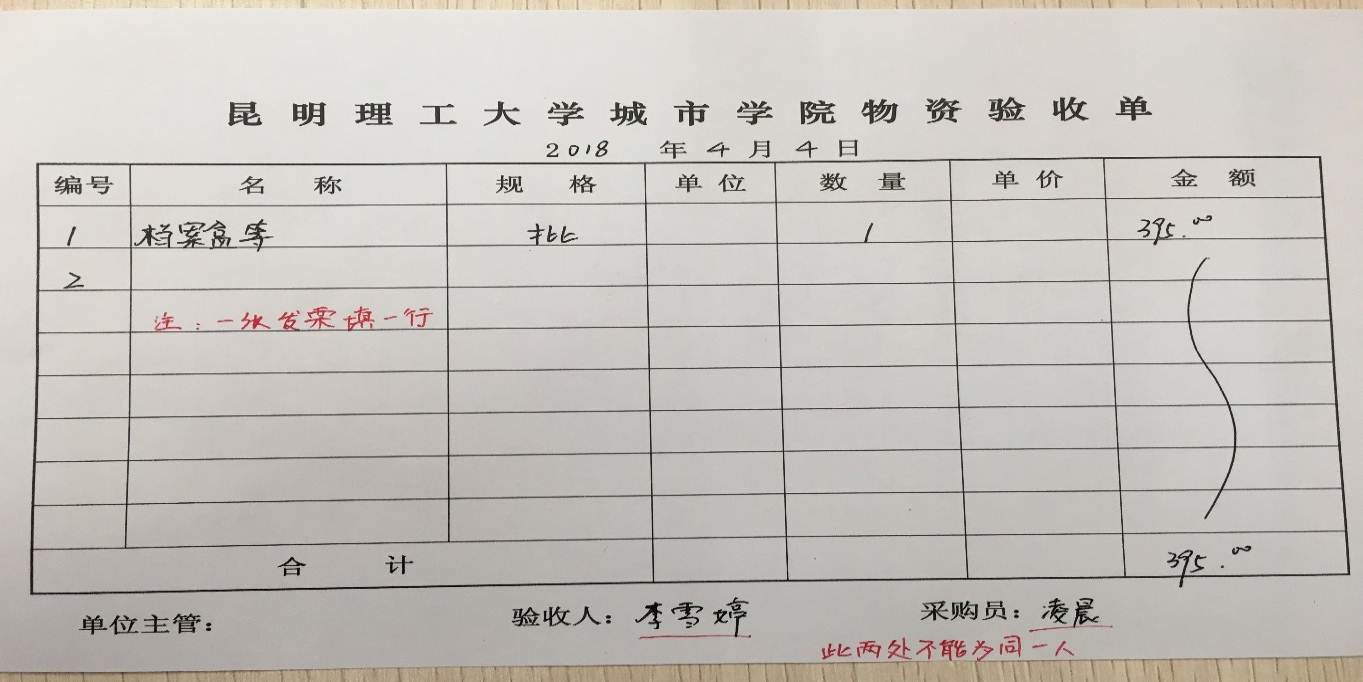 昆明理工大学城市学院物资验收单
2018 年 4 月 4 日
编号 名称 规格 单位 数量 单价 金额
1 档案盒等 批 1 395.00
2
注：一张发票填一行
合计 395.00
单位主管： 验收人：李雪婷 采购员：凌晨
此两处不能为同一人